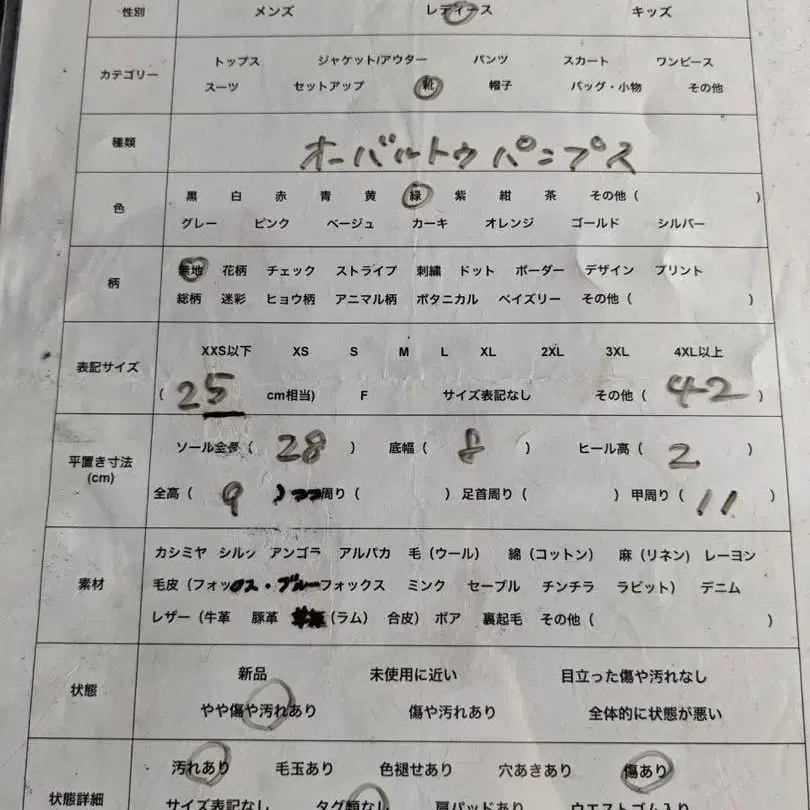 性別 メンズ レディース キッズ
カテゴリー トップス ジャケット/アウター パンツ スカート ワンピース
スーツ セットアップ 靴 帽子 バッグ・小物 その他
種類 オーバルトウ パンプス
色 黒 白 赤 青 黄 緑 紫 紺 茶 その他( )
グレー ピンク ベージュ カーキ オレンジ ゴールド シルバー
柄 無地 花柄 チェック ストライプ 刺繍 ドット ボーダー デザイン プリント
総柄 迷彩 ヒョウ柄 アニマル柄 ボタニカル ペイズリー その他( )
表記サイズ XXS以下 XS S M L XL 2XL 3XL 4XL以上
( 25 cm相当) F サイズ表記なし その他( 42 )
平置き寸法 (cm) ソール全長( 28 ) 底幅( 8 ) ヒール高( 2 )
全高( 9 ) 周り( ) 足首周り( ) 甲周り( 11 )
素材 カシミヤ シルク アンゴラ アルパカ 毛(ウール) 綿(コットン) 麻(リネン) レーヨン
毛皮(フォックス・ブルーフォックス ミンク セーブル チンチラ ラビット) デニム
レザー(牛革 豚革 (ラム) 合皮) ボア 裏起毛 その他( )
状態 新品 未使用に近い 目立った傷や汚れなし
やや傷や汚れあり 傷や汚れあり 全体的に状態が悪い
状態詳細 汚れあり 毛玉あり 色褪せあり 穴あきあり 傷あり
サイズ表記なし タグ類なし 肩パッドあり ウエストゴム入り